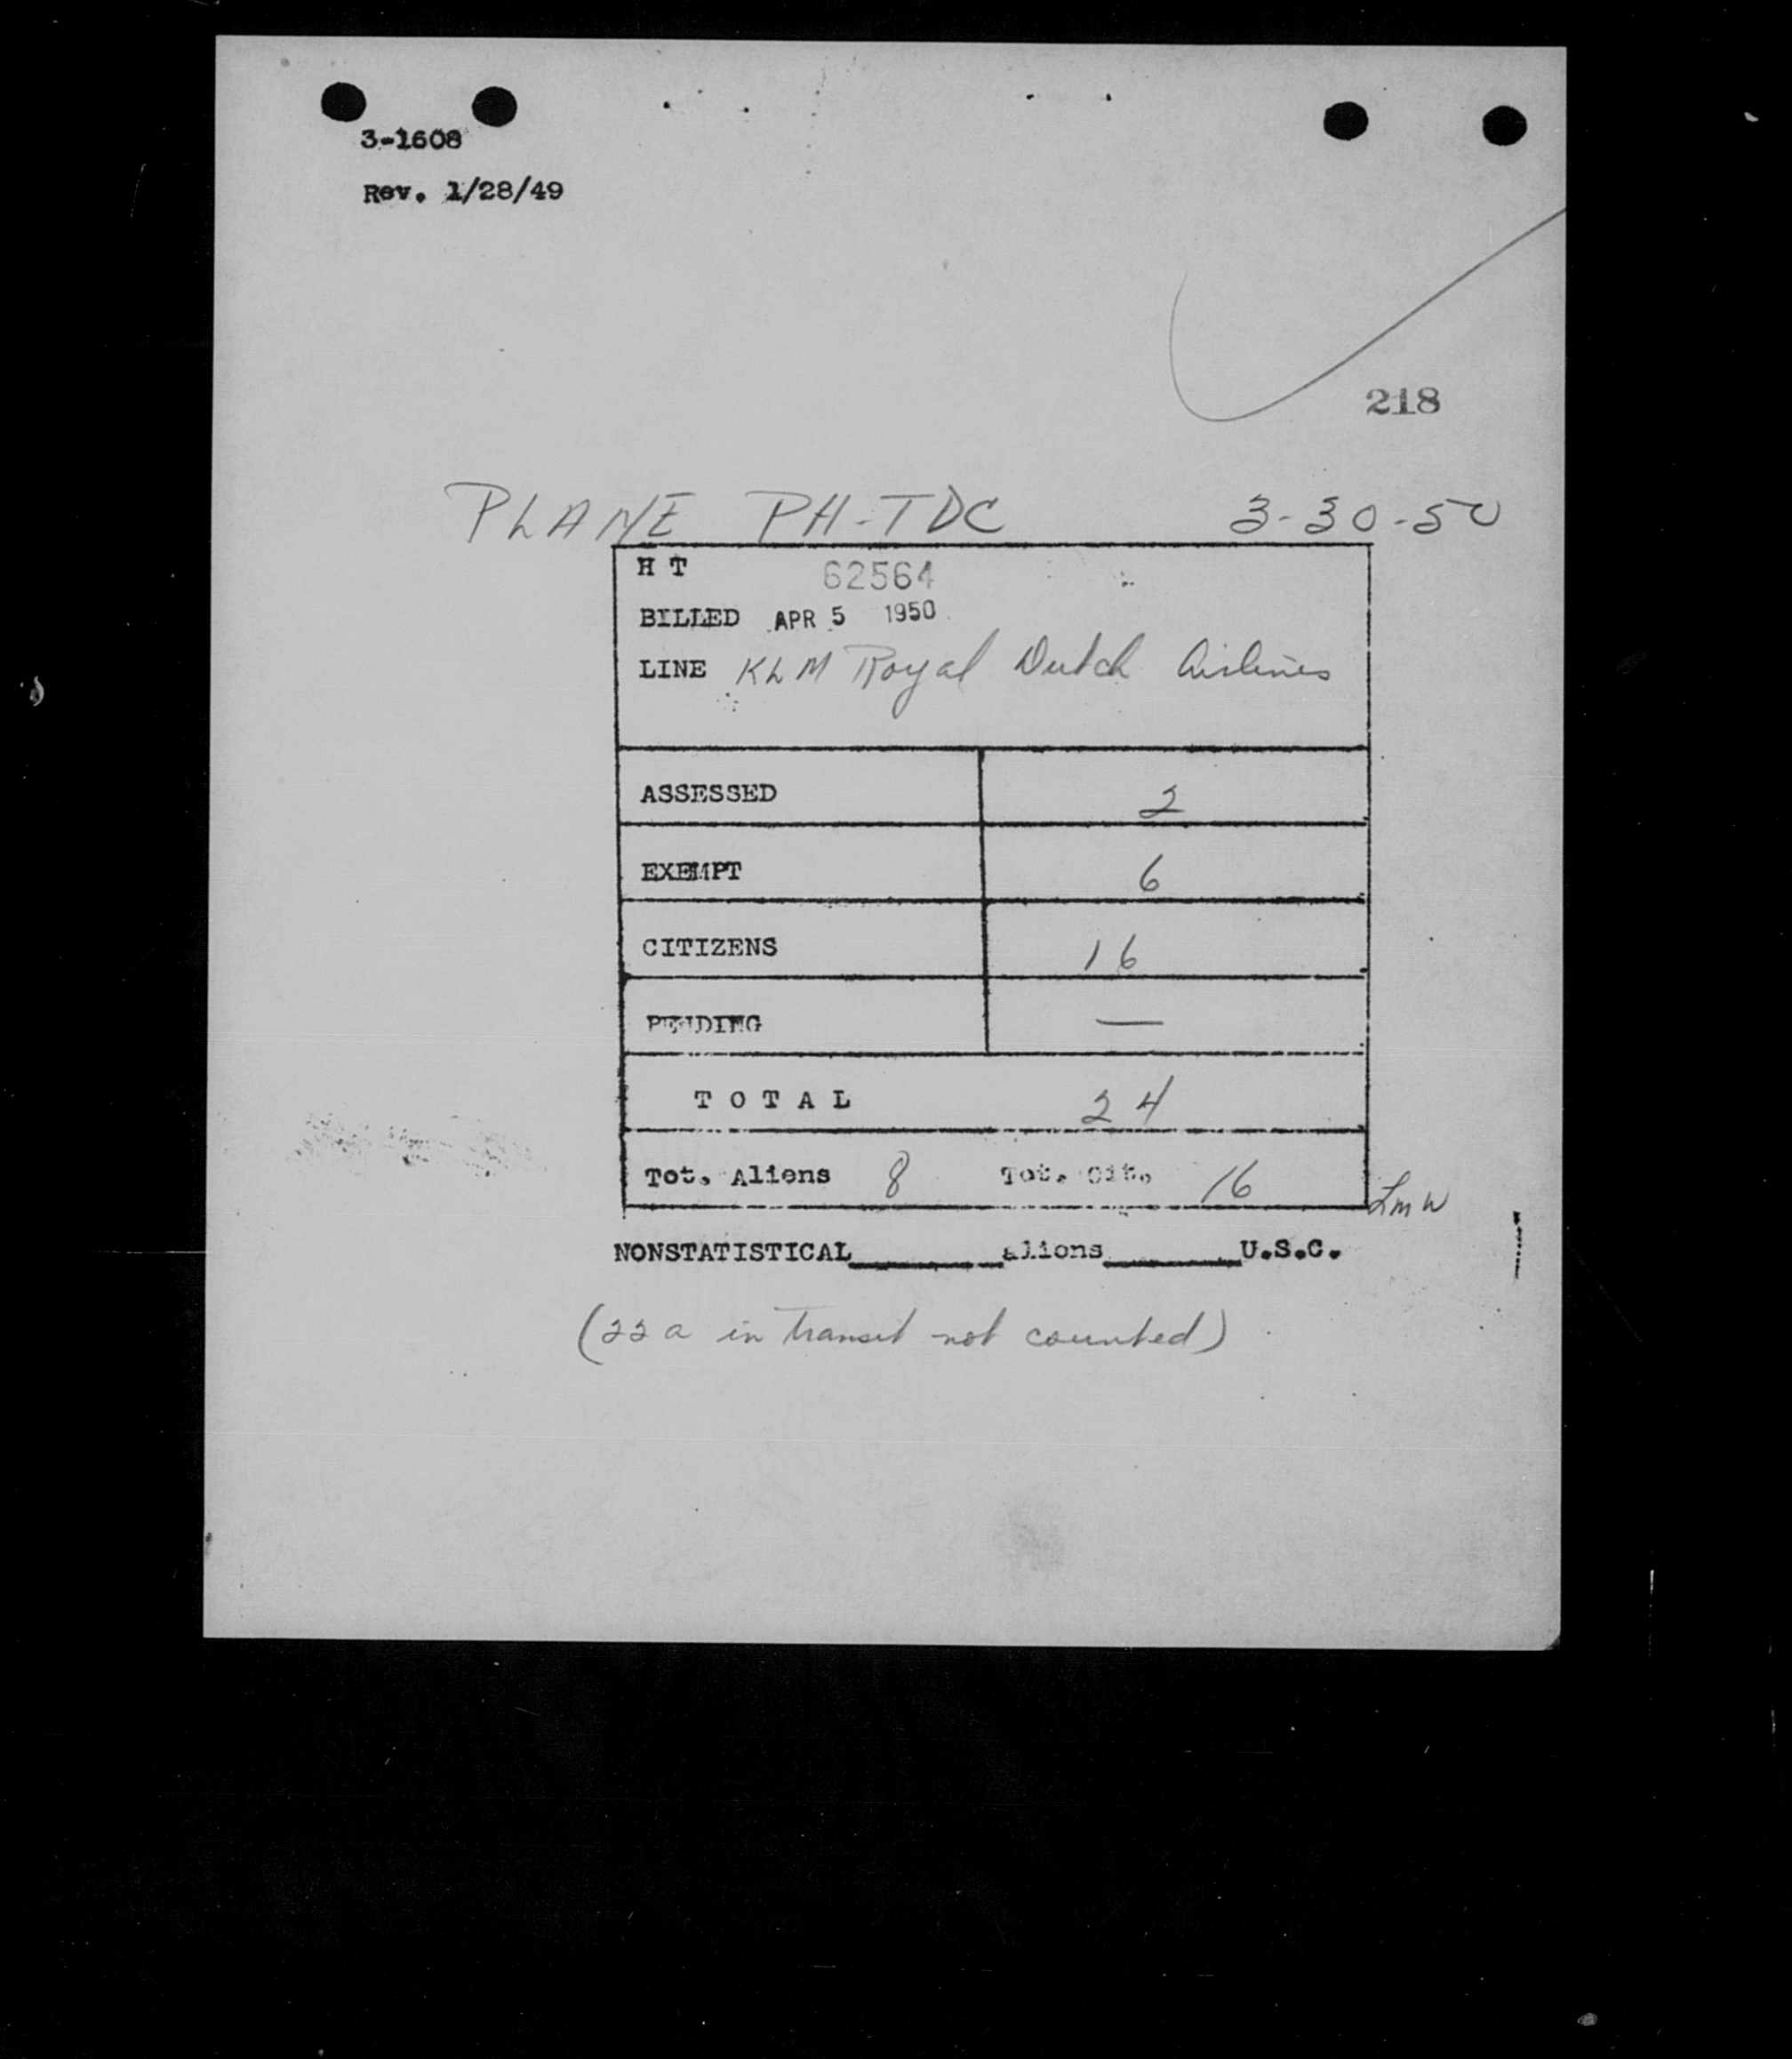 3-1608
Rev. 1/28/49
218
PLANE PH-TDC 3-30-50
H T 62564
BILLED APR 5 1950
LINE KLM Royal Dutch Airlines
ASSESSED 2
EXEMPT 6
CITIZENS 16
PENDING —
TOTAL 24
Tot. Aliens 8 Tot. Cit. 16
Lmw
NONSTATISTICAL______aliens______U.S.C.
(22 a in transit not counted)